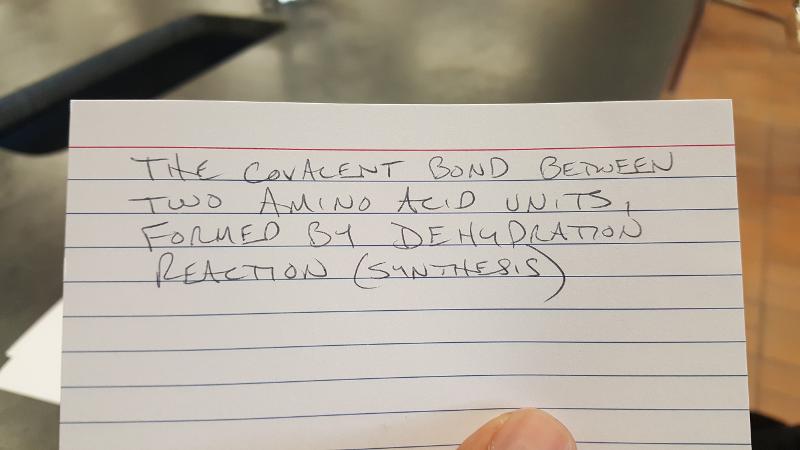 THE COVALENT BOND BETWEEN
TWO AMINO ACID UNITS,
FORMED BY DEHYDRATION
REACTION (SYNTHESIS)